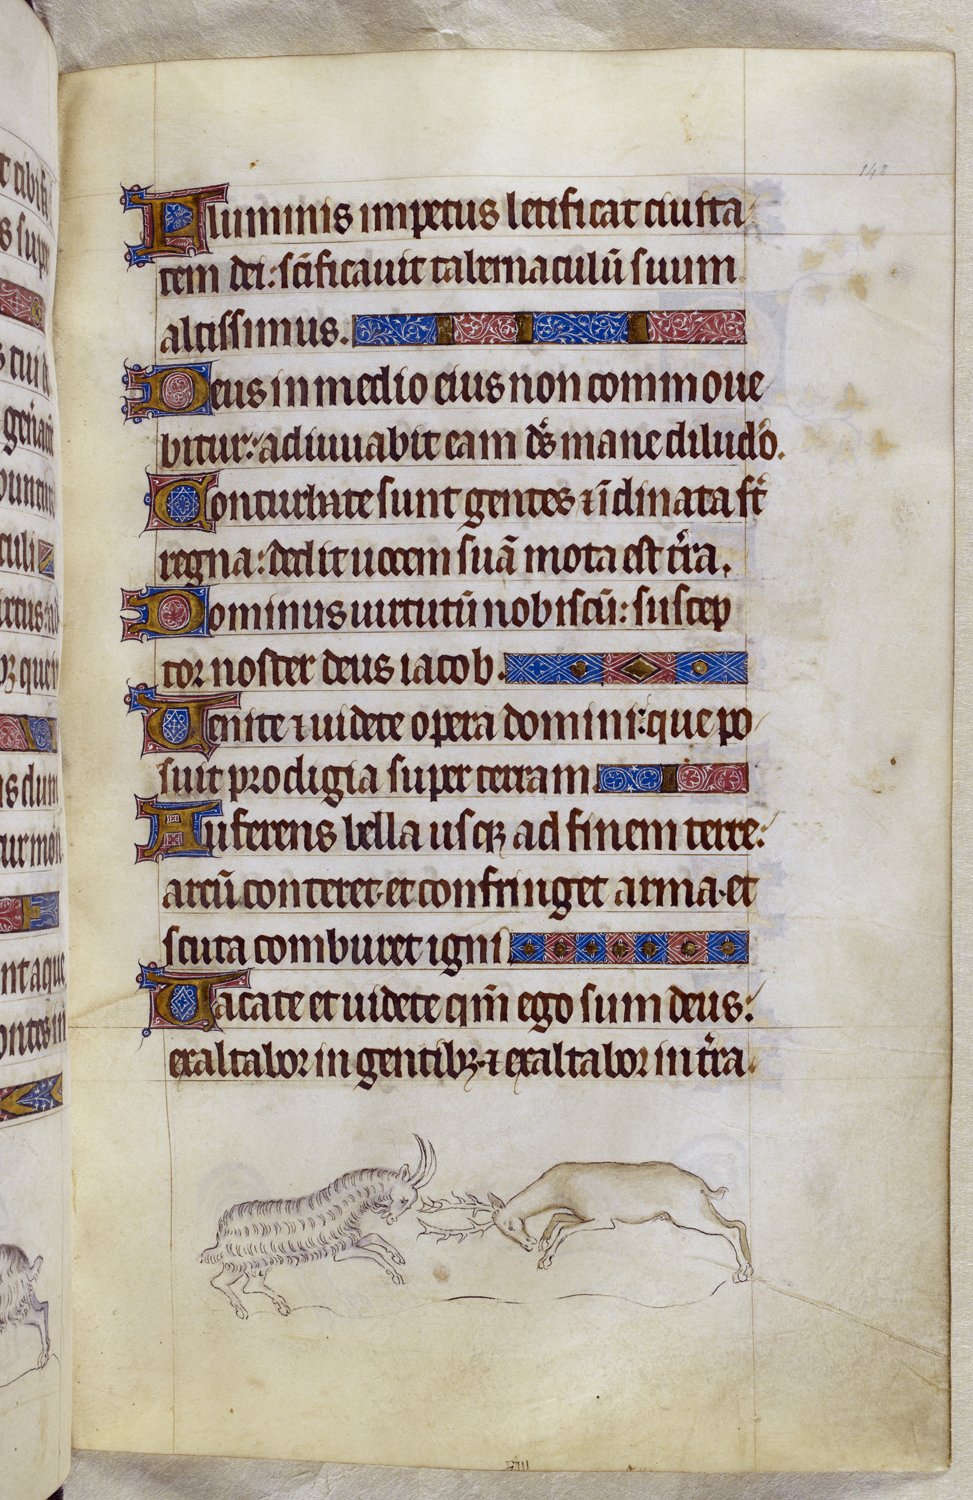 148
Fluminis impetus letificat ciuita
tem dei: scīficauit tabernaculū suum
altissimus.
Deus in medio eius non commoue
bitur: adiuuabit eam ds̄ mane diluclo.
Conturbate sunt gentes ⁊ īclinata st̄
regna: dedit uocem suā mota est tr̄a.
Dominus uirtutū nobiscū: suscep
tor noster deus iacob.
Uenite ⁊ uidete opera domini: que po
suit prodigia super terram
Auferens bella usqꝫ ad finem terre:
arcū conteret et confringet arma et
scuta comburet igni
Uacate et uidete qm̄ ego sum deus:
exaltabor in gentibꝫ ⁊ exaltabor in tr̄a